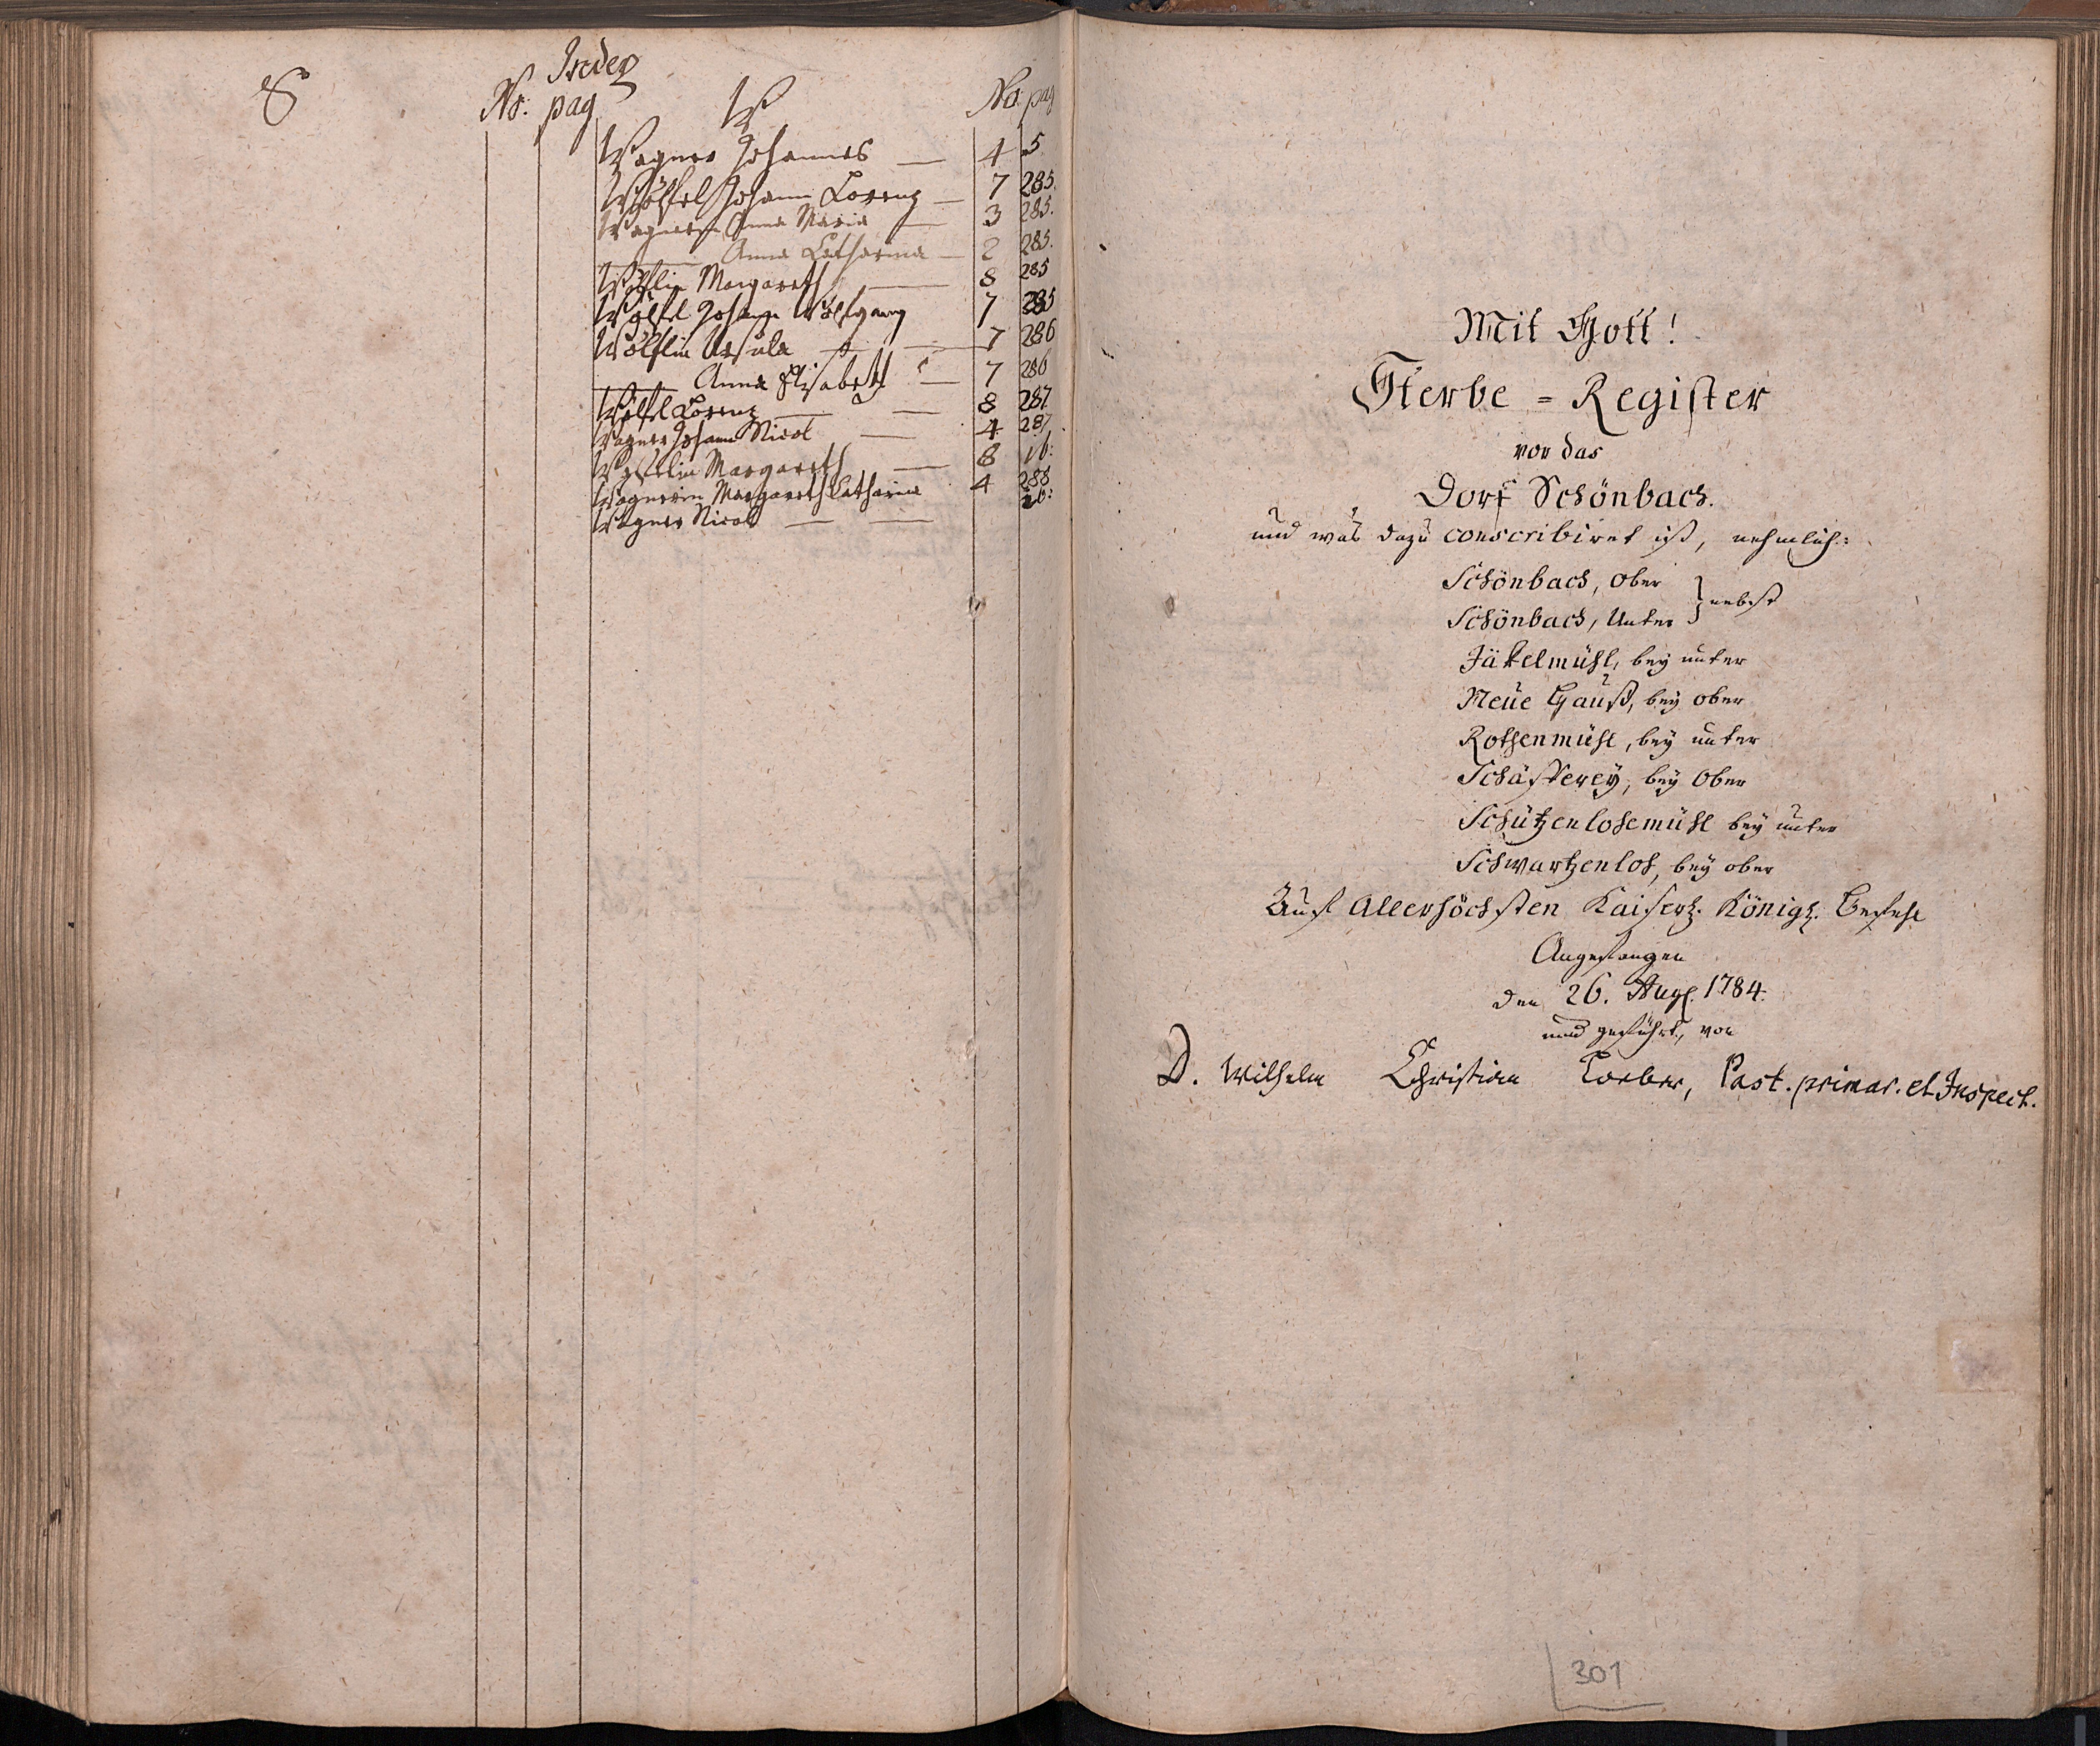 Index
S No: pag W No: pag
Wagner Johannes — 4 5
Wölfel Johann Lorenz — 7 285.
Wagnerin Anna Maria — 3 285.
——— Anna Catharina — 2 285.
Wölflin Margareth — 8 285
Wölfel Johann Wolfgang 7 285
Wölflin Ursula — 7 286
——— Anna Elisabeth — 7 286
Wölfel Lorenz — 8 287
Wagner Johann Nicol — 4 287.
Margareth — 8 ib:
Wagnerin Margareth Catharina 4 288
Wagner Nicol — — ib:
Mit Gott!
Sterbe = Register
vor das
Dorf Schönbach.
und was dazu conscribiret ist, nehmlich:
Schönbach, Ober
Schönbach, Unter } nebst
Jäkelmühl, bey unter
Neue Hauß, bey ober
Rothenmühl, bey unter
Schäfferey, bey Ober
Schützenlohemühl bey unter
Schwartzenloh, bey ober
Auf Allerhöchsten Kaiserl. Königl. Befehl
Angefangen
den 26. Aug. 1784.
und geführt, von
D. Wilhelm Christian Loeber, Past. primar. et Inspect.
301